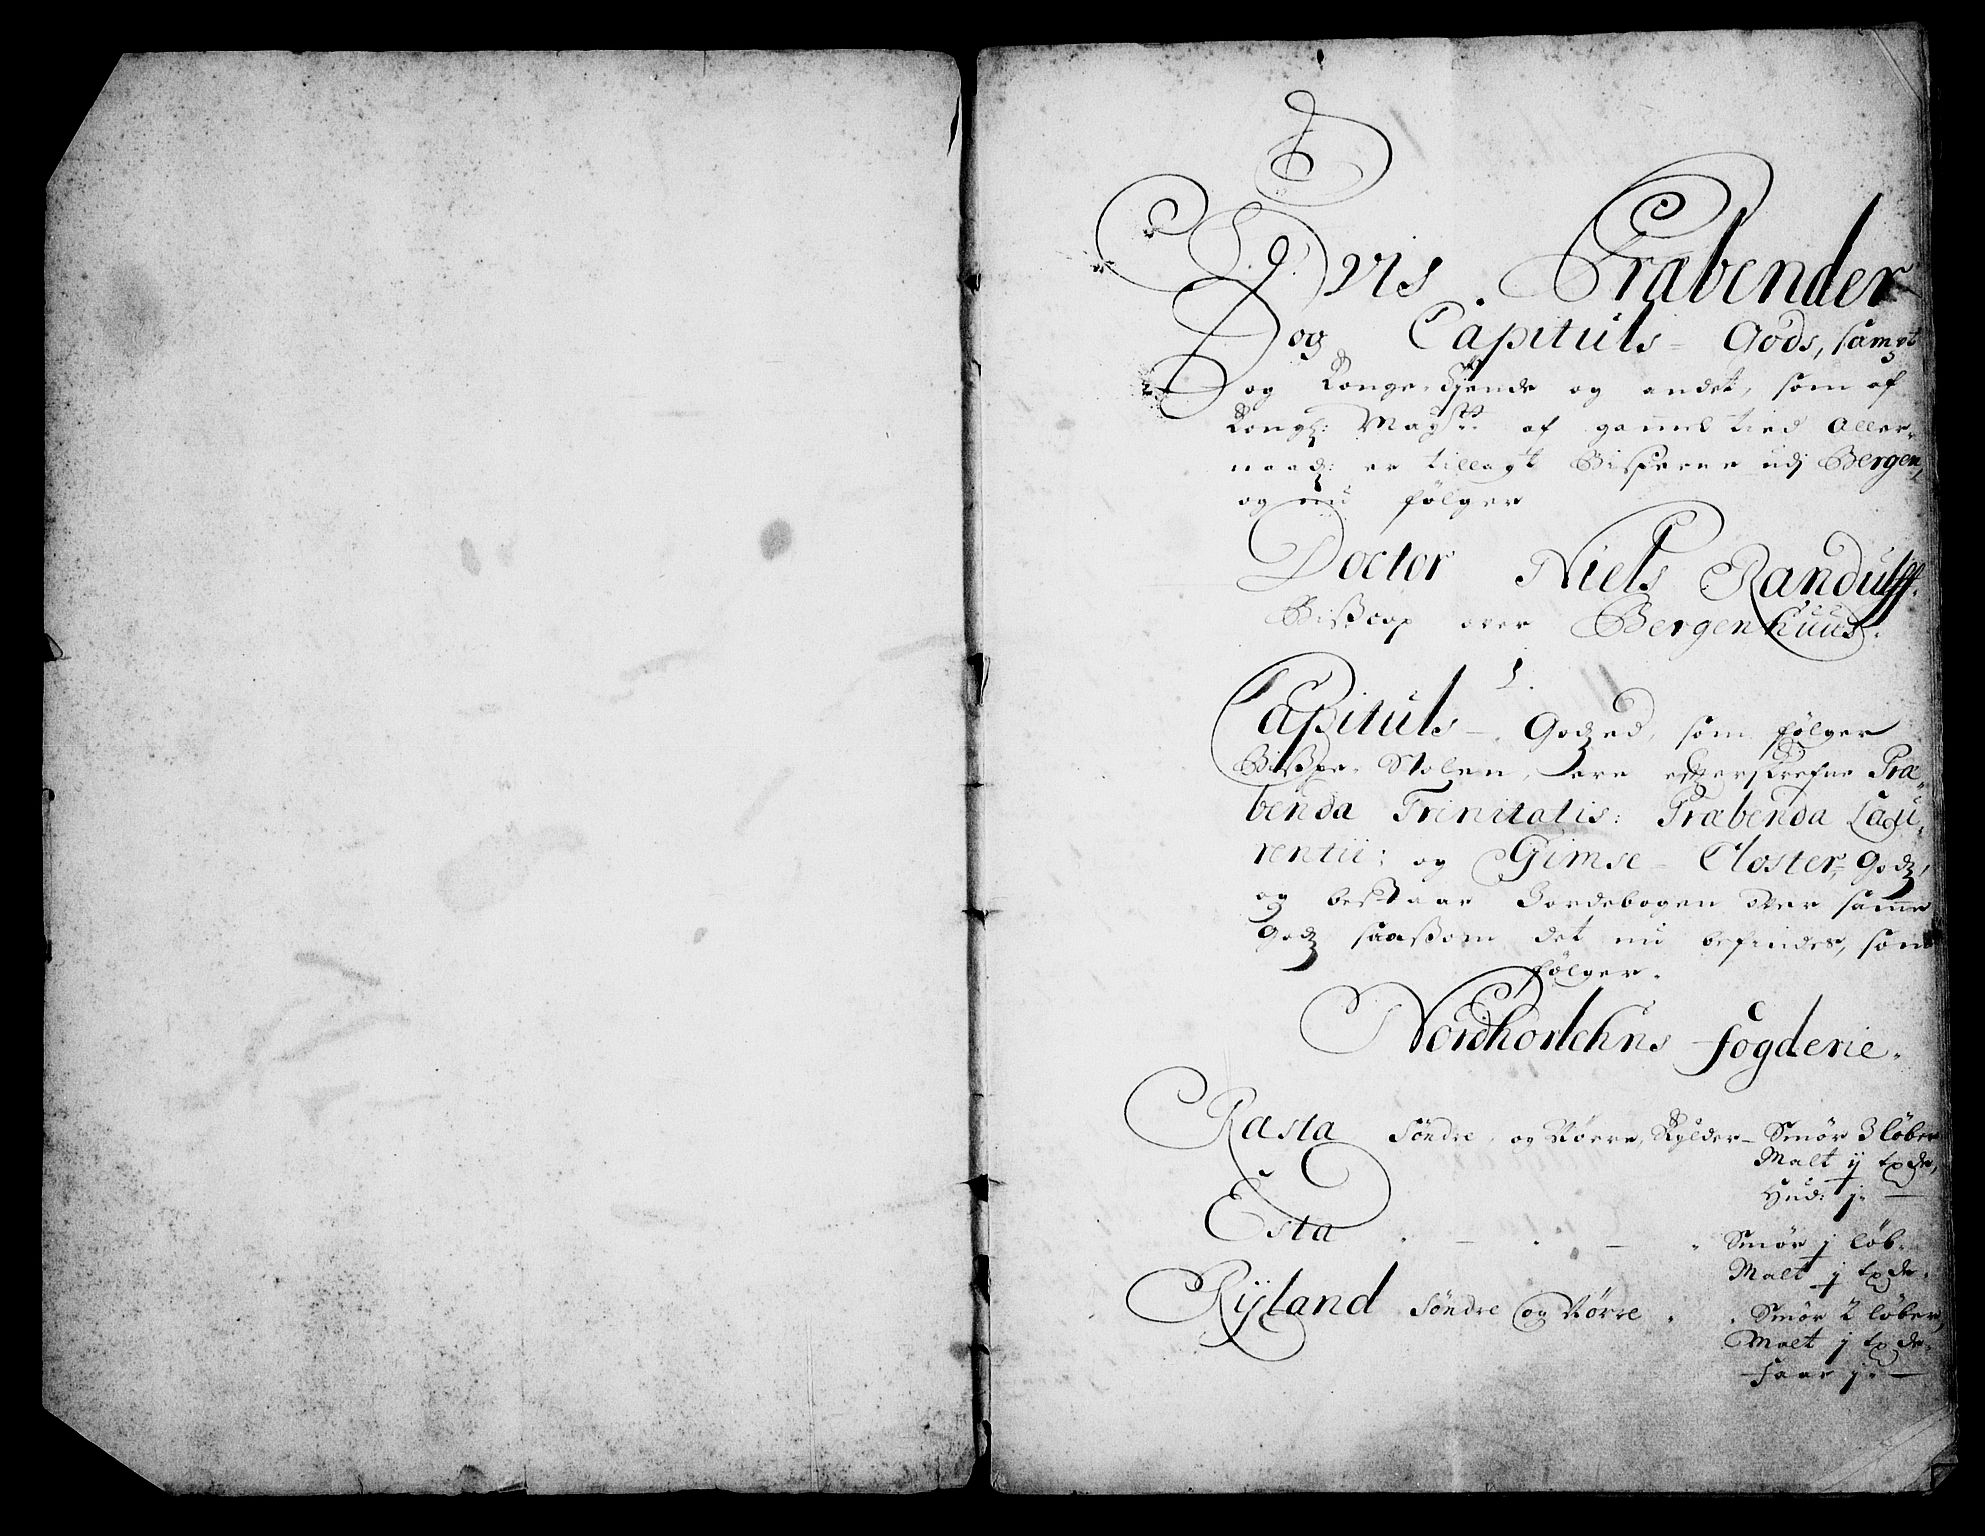 Hvis Præbender
og Capituls - Gods, sampt
og Konge-tjende og andet, som af
Kongl: Mayts: af gammel tied aller-
naad: er tillagt Bisperne udj Bergen,
og nu følger
Doctor Niels Randulff.
Biscop over Bergenhuus.
1.
Capituls - Godzed, som følger
Bispe-Stolen, ere efterskrefne Præ-
benda Trinitatis: Præbenda Lau-
rentii: og Gimse - Closter, Godz,
og bestaar Jordebogen over samme
Godz saasom det nu befindes, som
følger.
Nordhorlehns fogderie.
Rasta Søndre, og Nørre, skylder - Smør 3 løber
Malt ij
Hud: j. -
Esta . - . - . Smør j løb.
Malt j
Rijland Søndre og Nørre . . Smør 2 løber,
Malt j
Faar j. -